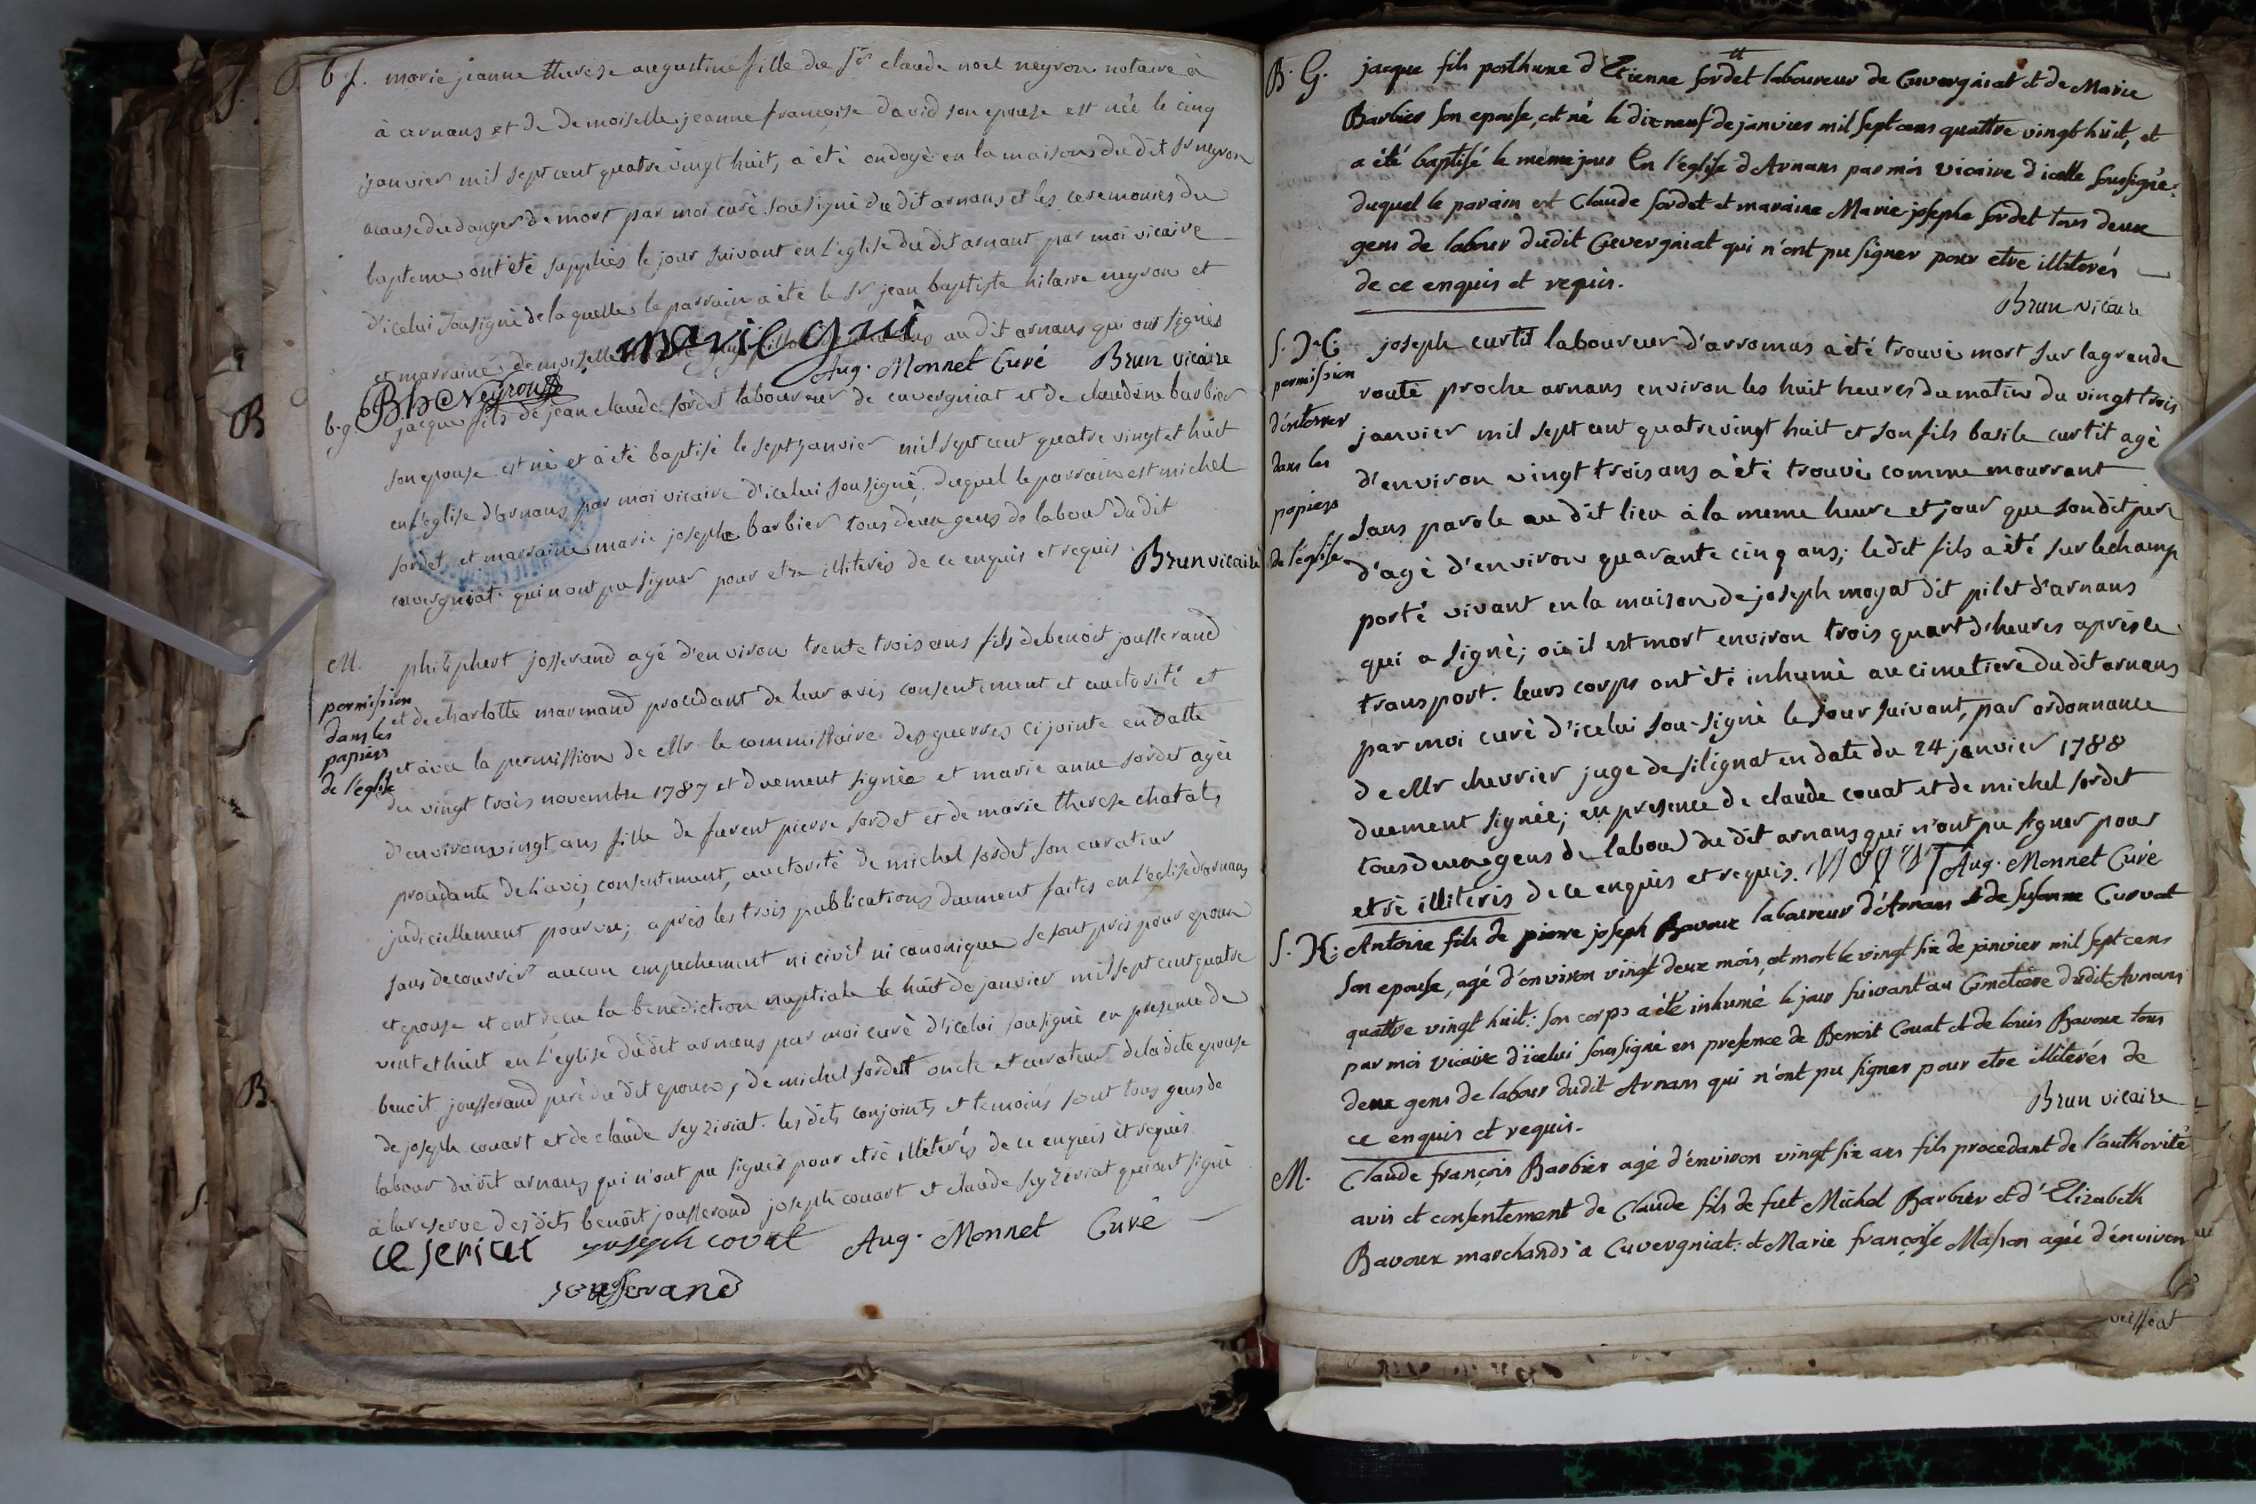 b. f. marie jeanne therese augustine fille du Sr claude noel neyron notaire à
à arnans et de demoiselle jeanne francoise david son epouse est née le cinq
janvier mil sept cent quatre vingt huit, a été ondoyé en la maison du dit Sr neyron
acause du danger de mort par moi curé sousigné du dit arnans et les ceremonies du
bapteme ont été supplies le jour suivant en l'eglise du dit arnant par moi vicaire
d'icelui sousigné de la quelle le parrain a été le Sr jean baptiste hilaire neyron et
et marraine demoiselle au dit arnans qui ont signés
marie
Aug. Monnet Curé Brun vicaire
b. g. jacque fils de jean claude sordet laboureur de cuvergniat et de claudine barbier
son epouse est né et a été baptisé le sept janvier mil sept cent quatre vingt et huit
en l'eglise d'arnans par moi vicaire d'icelui sousigné, duquel le parrain est michel
sordet et marraine marie josephe barbier tous deux gens de labour du dit
cuvergniat qui n'ont pu signer pour etre illiterés de ce enquis et requis Brun vicaire
M. philiphert josserand agé d'environ trente trois ans fils de benoit jousserand
permission
dans les
papiers
de l'église
et de charlotte marmand procedant de leur avis consentement et auctorité et
et avec la permission de Mr le commissaire des guerres ci jointe en datte
du vingt trois novembre 1787 et duement signée et marie anne sordet agée
d'environ vingt ans fille de fuvent pierre sordet et de marie therese chatat,
procedante de l'avis, consentement, auctorité de michel sordet son curateur
judiciellement pourvu; après les trois publications duement faites en l'eglise d'arnans
sans decouvrir aucun empechement ni civil ni canonique se sont pris pour epoux
et epouse et ont reçu la benediction nuptiale le huit de janvier mil sept cent quatre
vint et huit en l'eglise du dit arnans par moi curé d'icelui sousigné en presence de
benoit jousserand peré du dit epoux, de michel sordet oncle et curateur de la dite epouse
de joseph couart et de claude seyziriat. les dits conjoints et temoins sont tous gens de
labour du dit arnans qui n'ont pu signer pour etre illiterés de ce enquis et requis
à la reserve des dits benoit jousserand joseph couart et claude seyzeriat qui ont signé
joseph covat Aug. Monnet Curé
jousserand
B. G. jacque fils posthume d'Etienne sordet laboureur de Cuvergniat et de Marie
Barbier son epouse, est né le dixneuf de janvier mil sept cens quattre vingt huit, et
a été baptisé le même jour En l'église d'Arnans par moi vicaire d'icelle soussigné:
duquel le parain est Claude sordet et maraine Marie josephe sordet tous deux
gens de labour dudit Cuvergniat qui n'ont pu signer pour etre illiterés
de ce enquis et requis.
Brun vicaire
S. J. C. joseph curtil laboureur d'arromas a été trouvé mort sur la grende
permission
d'enterrer
dans les
papiers
de l'église
route proche arnans environ les huit heures du matin du vingt trois
janvier mil sept cent quatre vingt huit et son fils basile curtit agé
d'environ vingt trois ans a été trouvé comme mourrant
sans parole au dit lieu à la meme heure et jour que son dit pere
d'agé d'environ quarante cinq ans; le dit fils a été sur le champ
porté vivant en la maison de joseph moyat dit pilet d'arnans
qui a signé; où il est mort environ trois quart d'heures après le
transport. leurs corps ont été inhumé au cimetiere du dit arnans
par moi curé d'icelui sou-signé le jour suivant, par ordonnance
de Mr chevrier juge de silignat en date du 24 janvier 1788
duement signée; en presence de claude couat et de michel sordet
tous deux gens de labour du dit arnans qui n'ont pu signer pour
etre illiteris de ce enquis et requis. Aug. Monnet Curé
S. K. Antoine fils de pierre joseph Bavoux laboureur d'Arnans et de Susanne Curvat
son epouse, agé d'environ vingt deux mois, et mort le vingt six de janvier mil sept cens
quattre vingt huit: son corps a été inhumé le jour suivant au Cimetiere dudit Arnans
par moi vicaire d'icelui soussigné en presence de Benoit Couat et de louis Bavoux tous
deux gens de labour dudit Arnans qui n'ont pu signer pour etre illiterés de
ce enquis et requis.
Brun vicaire
M. Claude françois Barbier agé d'environ vingt six ans fils procedant de l'authorité
avis et consentement de Claude fils de fut Michel Barbier et d'Elizabeth
Bavoux marchands à Cuvergniat: et Marie françoise Masson agée d'environ